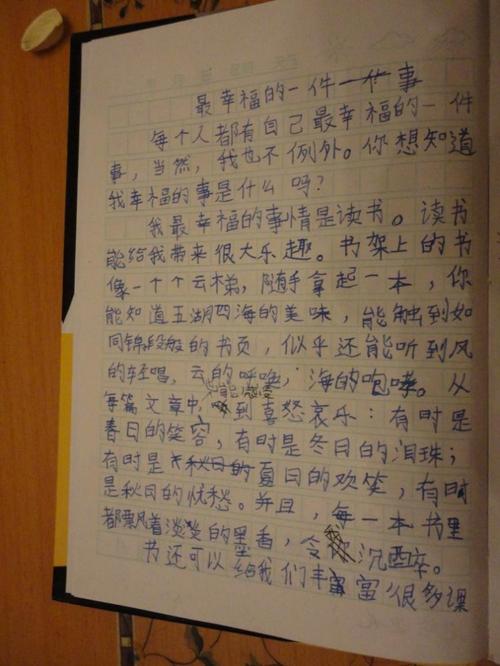 最幸福的一件事
每个人都有自己最幸福的一件
事，当然，我也不例外。你想知道
我幸福的事是什么吗？
我最幸福的事情是读书。读书
能给我带来很大乐趣。书架上的书
像一个个云梯，随手拿起一本，你
能知道五湖四海的美味，能触到如
同锦段般的书页，似乎还能听到风
的轻唱，云的呼唤，海的咆哮。从
每篇文章中，能感受到喜怒哀乐：有时是
春日的笑容，有时是冬日的泪珠；
有时是夏日的欢笑，有时
是秋日的忧愁。并且，每一本书里
都飘着淡淡的墨香，令你沉醉。
书还可以给我们丰富很多课